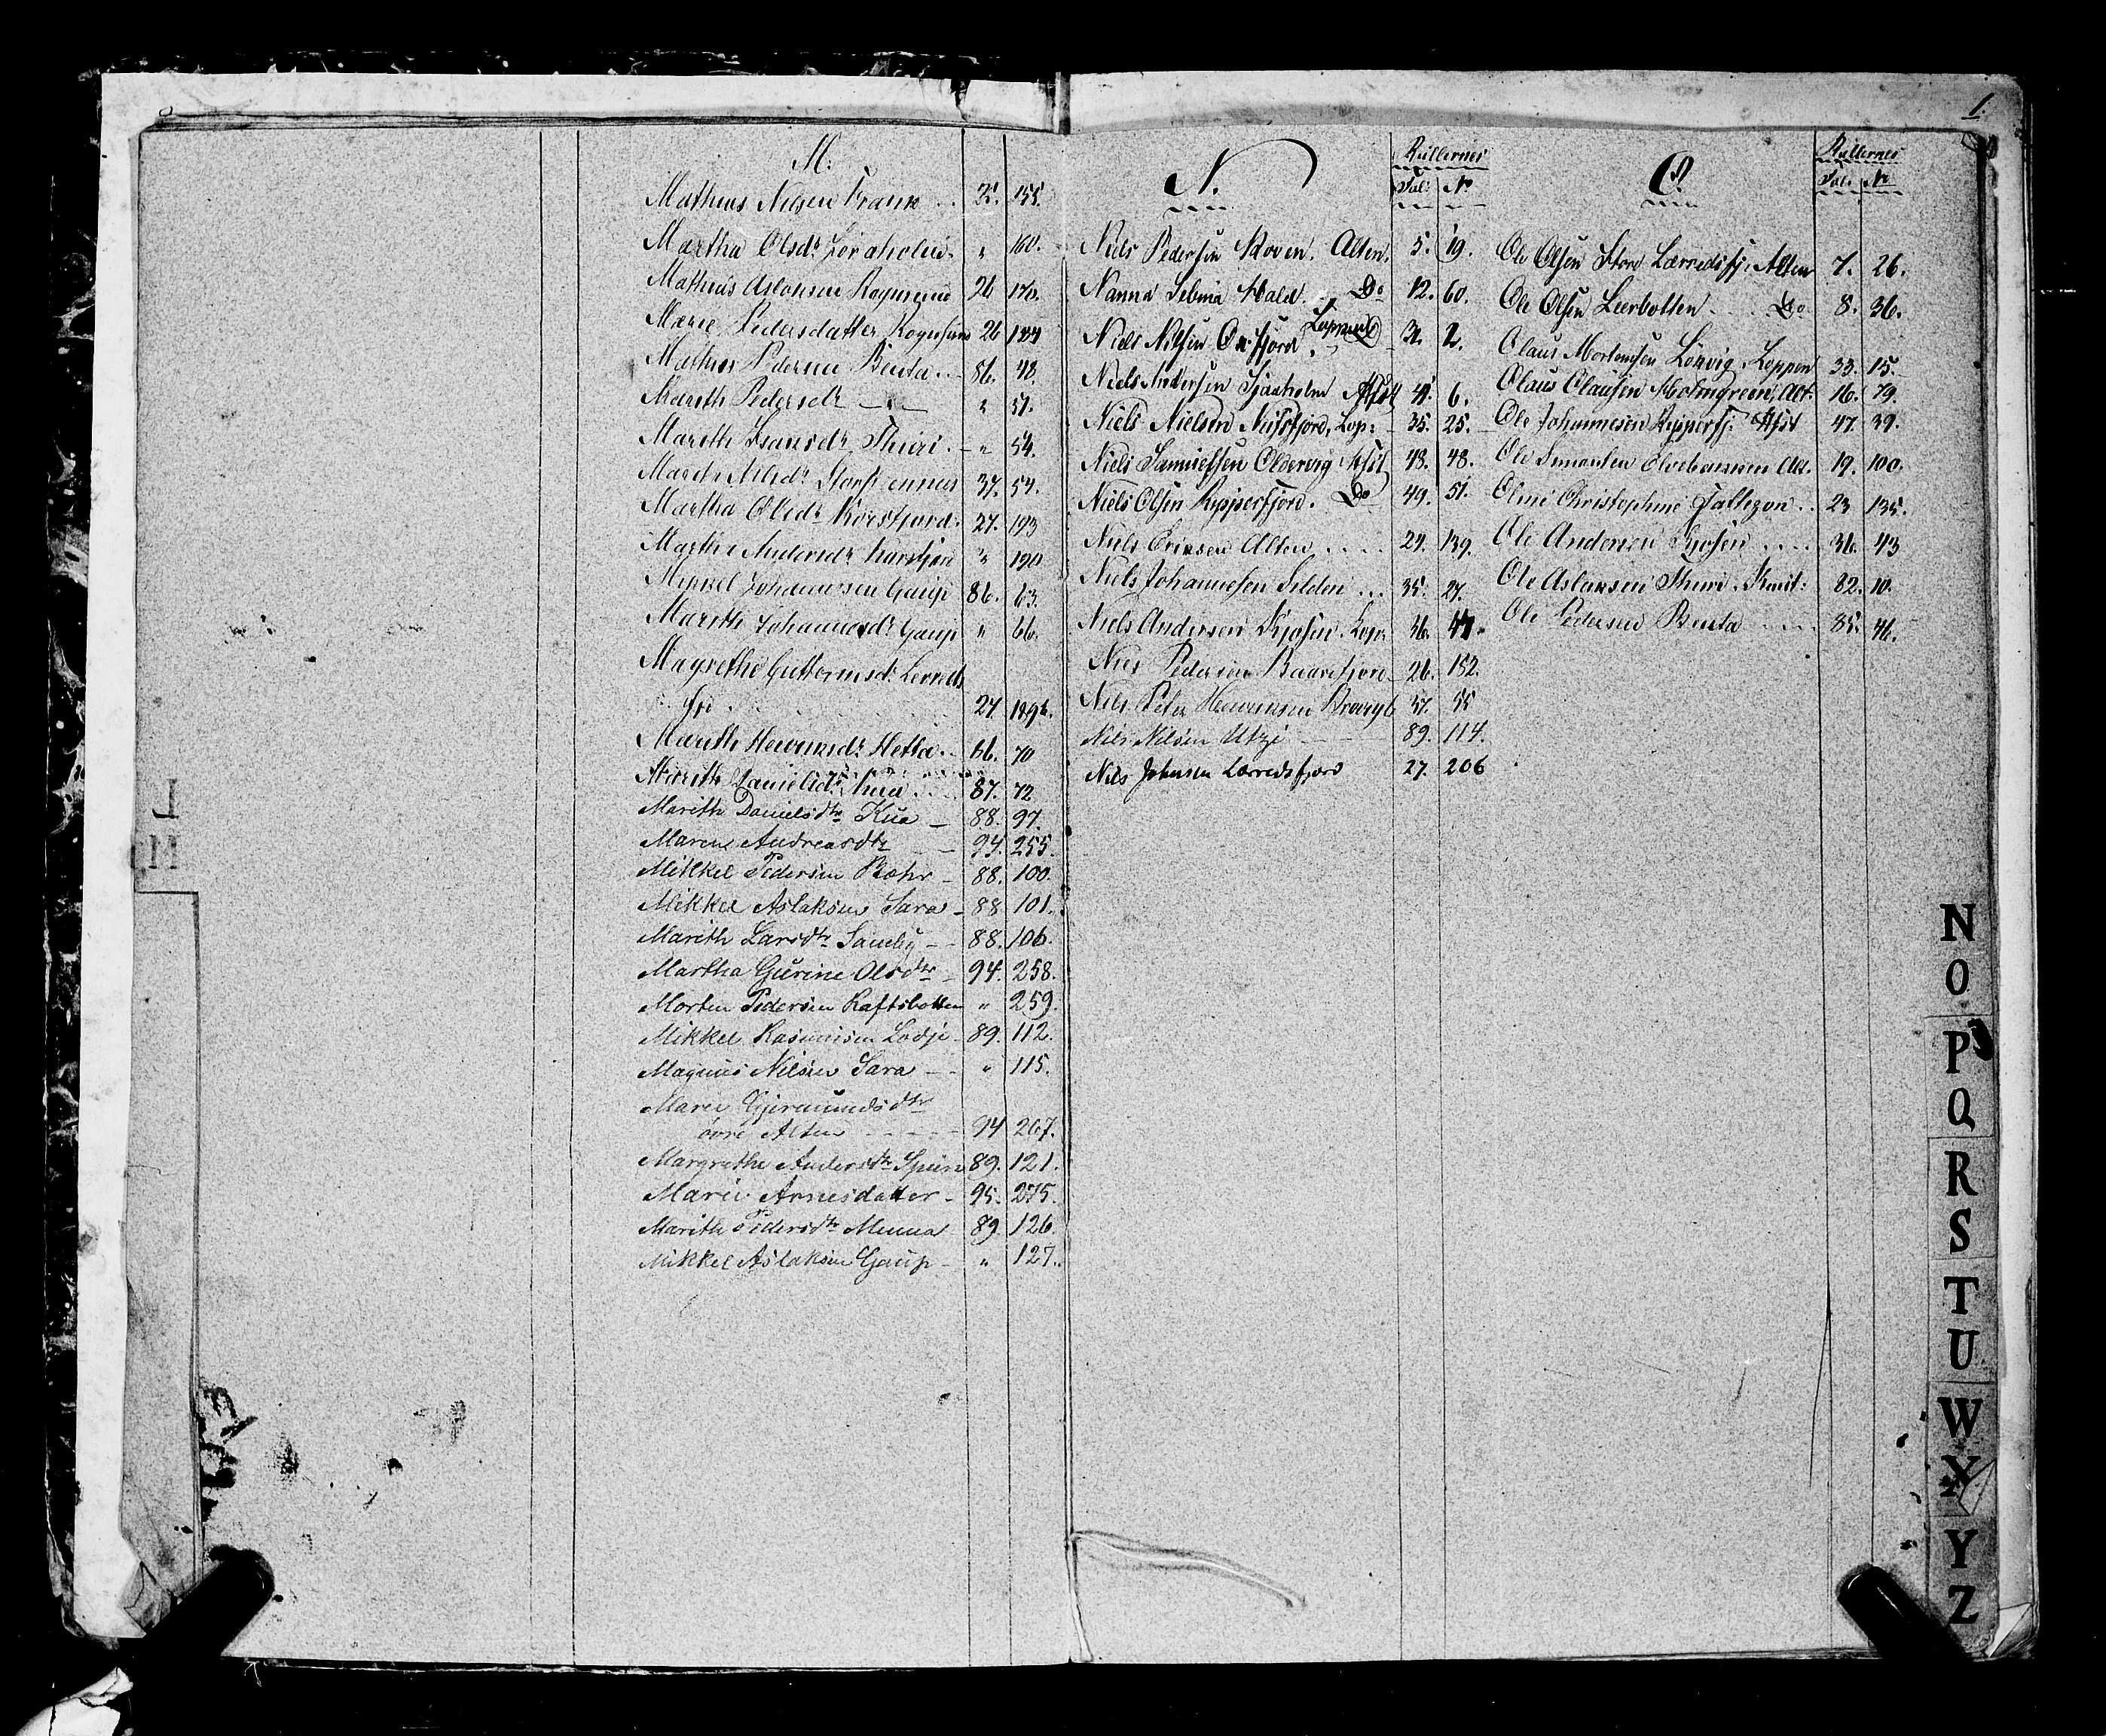 M.
Mathias Nilsen Frank . . 25. 155.
Martha Olsdr „ 160.
Mathias Aslaksen Rognsund 26 170.
Marie Pedersdatter Rognsund 26
Mathis Pedersen Beuta . . 86. 48.
Marith Pedersdr — „ 51.
Marith Isaksdr Thuri . — „ 54.
37. 54.
Martha Olsdr Korsfjord. 27. 193
Marthe Andersdr Korsfjord „ 190
Mikkel Johannesen Gaup 86. 63.
Marith Johannesdr Gaup „ 66.
Magrethe Guttormsdr Lerreds
fjo . 27
Marith Henriksdr Hetta . . 86. 70
Marith Danielsdr . . . 87. 72
Marith Danielsdtr Kua — 88. 97.
Maren Andreasdtr — 94. 255.
Mikkel Pedersen Bæhr — 88. 100.
Mikkel Aslaksen Sara — 88 101.
Marith Larsdtr Somby — 88. 106.
Martha Gurine Olsdtr — 94. 258.
Morten Pedersen Rafsbotten „ 259.
Mikkel Rasmusen Lodje — 89. 112.
Magnus Nilsen Sara — „ 115.
Maren Gjermundsdtr
övre Alten — 94 267.
Margrethe Andersdtr Spein 89. 121.
Marie Arnesdatter — 95. 275.
Marith Pedersdtr Menna 89. 126.
Mikkel Aslaksen Gaup — „ 127.
N. Rullernes
Fol: No
Niels Pedersen Skoven. Alten. 5. 19.
Nanna Selma Hald. Do 12. 60.
Niels Nilsen Oxfjord. Loppen 31. 2.
Niels Andersen Sjaaholm Hfst 41. 6.
Niels Nielsen Nufsfjord, Lop: 35. 25.
Niels Samuelsen Oldervig Hfst 48. 48.
Niels Olsen Repperfjord. Do 49. 51.
Niels Eriksen Alten . . . . 24. 139.
Niels Johannesen Silden . . . 35. 27.
Niels Andersen Kjosen. Lop: 36. 41.
Nils Pedersen Baarefjord 26. 182.
Nils Peter Henriksen 37. 55
Nils Nilsen Utzi — 89. 114.
Nils Johnsen Lerredsfjord 27. 206
1.
O. Rullernes
Fol. No
Ole Olsen Store Lerredsfj. Alten 7. 26.
Ole Olsen Leerbotten . . . . Do 8. 36.
Olaus Mortensen Lökvig. Loppen 33. 15.
Olaus Olausen Holmgreen, Alt. 16. 79.
Ole Johannesen Repperfj. Hfst 47. 39.
Ole Simonsen Elvebakken Alt. 19. 100.
Oline Christophine . . 23 135.
Ole Andersen Kjosen . . . . 36. 43
Ole Aslaksen Thuri. Kaut: 82. 10.
Ole Pedersen Beuta . . . . 85. 46.
L
M
N
O
P
Q
R
S
T
U
W
X
Y
Z